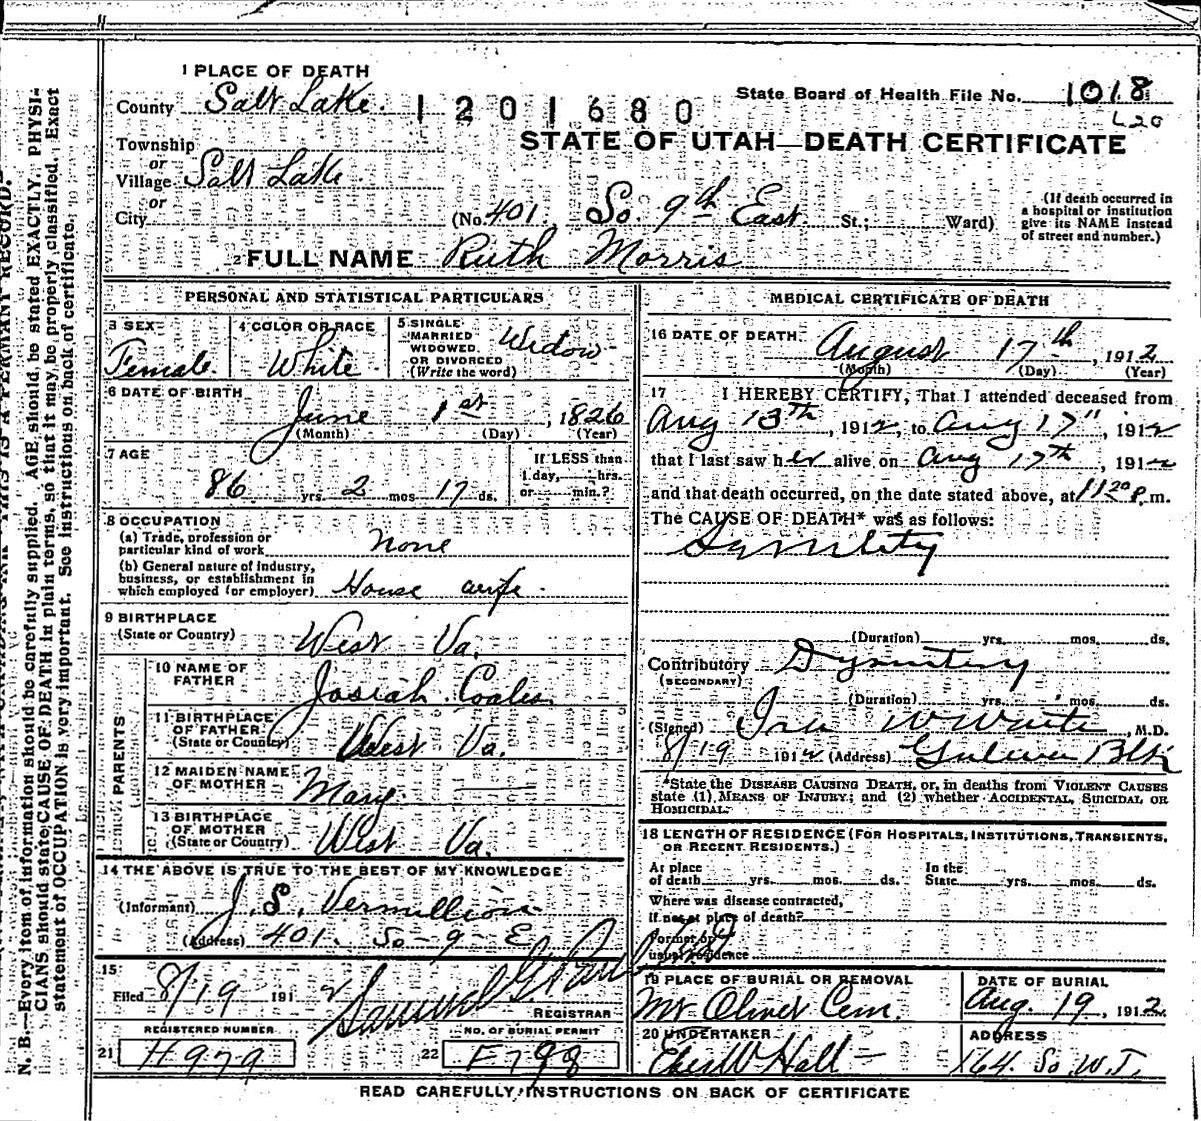 1 PLACE OF DEATH
County Salt Lake.
1201680
State Board of Health File No. 1018
L20
STATE OF UTAH—DEATH CERTIFICATE
Township
or
Village Salt Lake
or
City
(No. 401. So. 9th East St.; Ward)
(If death occurred in
a hospital or institution
give its NAME instead
of street and number.)
2 FULL NAME Ruth Morris
PERSONAL AND STATISTICAL PARTICULARS
3 SEX
Female.
4 COLOR OR RACE
White.
5 SINGLE
MARRIED
WIDOWED
OR DIVORCED
(Write the word)
Widow
6 DATE OF BIRTH
June 1st, 1826
(Month) (Day) (Year)
7 AGE
86 yrs. 2 mos. 17 ds.
If LESS than
1 day, hrs.
or min.?
8 OCCUPATION
(a) Trade, profession or
particular kind of work none
(b) General nature of industry,
business, or establishment in
which employed (or employer) House wife.
9 BIRTHPLACE
(State or Country) West Va.
PARENTS
10 NAME OF
FATHER Josiah
11 BIRTHPLACE
OF FATHER
(State or Country) West Va.
12 MAIDEN NAME
OF MOTHER Mary
13 BIRTHPLACE
OF MOTHER
(State or Country) West Va.
14 THE ABOVE IS TRUE TO THE BEST OF MY KNOWLEDGE
(Informant) J. S. Vermillion
(Address) 401. So-9-E.
15
Filed 8/19 1912 Samuel G. Paul
REGISTRAR
REGISTERED NUMBER
21 H979
NO. OF BURIAL PERMIT
22 F798
MEDICAL CERTIFICATE OF DEATH
16 DATE OF DEATH
August 17th, 1912
(Month) (Day) (Year)
17 I HEREBY CERTIFY, That I attended deceased from
Aug 13th, 1912, to Aug 17", 1912
that I last saw her alive on Aug 17th, 1912
and that death occurred, on the date stated above, at 11 20 P.m.
The CAUSE OF DEATH* was as follows:
(Duration) yrs. mos. ds.
Contributory Dysentery
(SECONDARY)
(Duration) yrs. mos. ds.
(Signed) Ira W
, M.D.
8/19 1912 (Address) Blk
*State the DISEASE CAUSING DEATH, or, in deaths from VIOLENT CAUSES
state (1) MEANS OF INJURY; and (2) whether ACCIDENTAL, SUICIDAL OR
HOMICIDAL.
18 LENGTH OF RESIDENCE (FOR HOSPITALS, INSTITUTIONS, TRANSIENTS,
OR RECENT RESIDENTS.)
At place
of death yrs. mos. ds.
In the
State yrs. mos. ds.
Where was disease contracted,
if not at place of death?
Former or
usual residence
19 PLACE OF BURIAL OR REMOVAL
Mt Olivet Cem.
DATE OF BURIAL
Aug. 19, 1912
20 UNDERTAKER
Eber W Hall
ADDRESS
164. So. W.T.
READ CAREFULLY INSTRUCTIONS ON BACK OF CERTIFICATE
N. B.—Every item of information should be carefully supplied. AGE should be stated EXACTLY. PHYSI-
CIANS should state CAUSE OF DEATH in plain terms, so that it may be properly classified. Exact
statement of OCCUPATION is very important. See instructions on back of certificate.